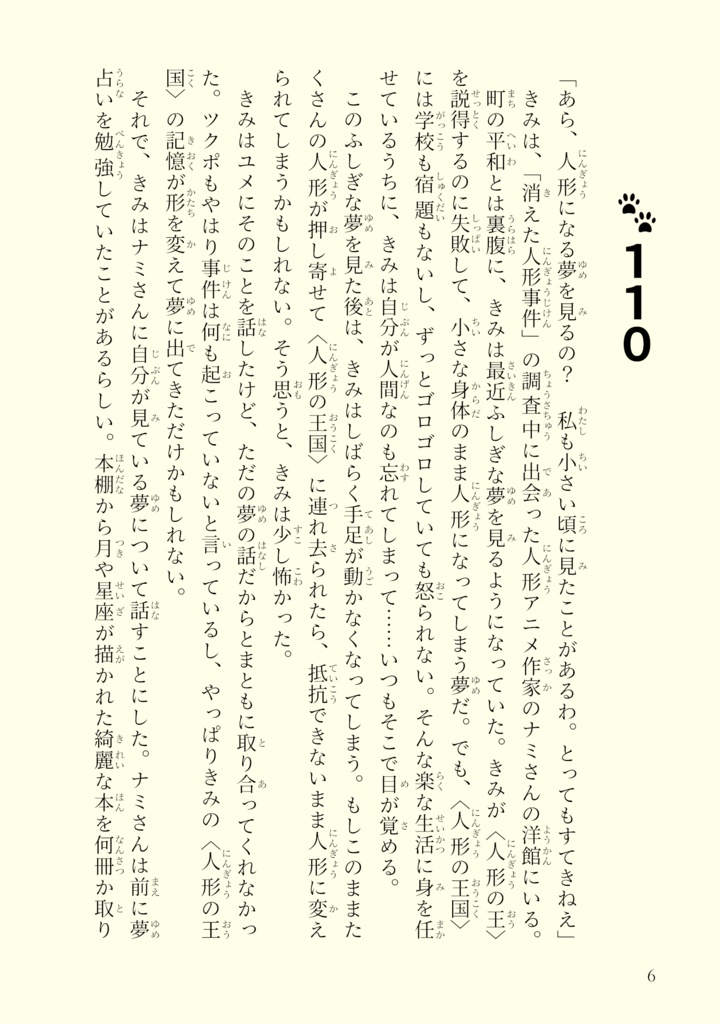 110
「あら、人形になる夢を見るの？　私も小さい頃に見たことがあるわ。とってもすてきねえ」
きみは、「消えた人形事件」の調査中に出会った人形アニメ作家のナミさんの洋館にいる。
町の平和とは裏腹に、きみは最近ふしぎな夢を見るようになっていた。きみが〈人形の王〉
を説得するのに失敗して、小さな身体のまま人形になってしまう夢だ。でも、〈人形の王国〉
には学校も宿題もないし、ずっとゴロゴロしていても怒られない。そんな楽な生活に身を任
せているうちに、きみは自分が人間なのも忘れてしまって……いつもそこで目が覚める。
このふしぎな夢を見た後は、きみはしばらく手足が動かなくなってしまう。もしこのままた
くさんの人形が押し寄せて〈人形の王国〉に連れ去られたら、抵抗できないまま人形に変え
られてしまうかもしれない。そう思うと、きみは少し怖かった。
きみはユメにそのことを話したけど、ただの夢の話だからとまともに取り合ってくれなかっ
た。ツクポもやはり事件は何も起こっていないと言っているし、やっぱりきみの〈人形の王
国〉の記憶が形を変えて夢に出てきただけかもしれない。
それで、きみはナミさんに自分が見ている夢について話すことにした。ナミさんは前に夢
占いを勉強していたことがあるらしい。本棚から月や星座が描かれた綺麗な本を何冊か取り
6